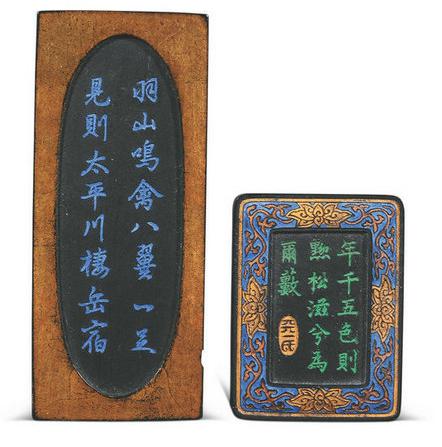 羽山鳴禽八翼一足
見則太平川棲岳宿
年千五色則
黝松滋兮為
爾藪
天氏